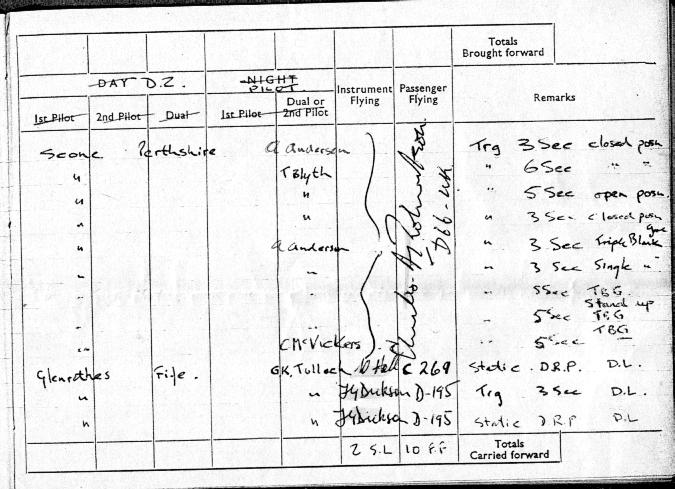 Totals
Brought forward
DAY D.Z. NIGHT PILOT Instrument Flying Passenger Flying Remarks
1st Pilot 2nd Pilot Dual 1st Pilot Dual or 2nd Pilot
Scone Perthshire A Anderson Trg 3 Sec closed posn
" T Blyth " 6 Sec " "
" " " 5 Sec open posn.
" " " 3 Sec closed posn
" A Anderson " 3 Sec Triple
" " " 3 Sec Single "
" 5 Sec TBG
Stand up
" 5 Sec TBG
" C McVickers " 5 Sec TBG
Glenrothes Fife. GK. Tulloch C 269 Static D.R.P. D.L.
" " Dickson D-195 Trg 3 Sec D.L.
" " Dickson D-195 Static D.R.P D.L
2 S.L 10 F.F Totals
Carried forward
D66-UK